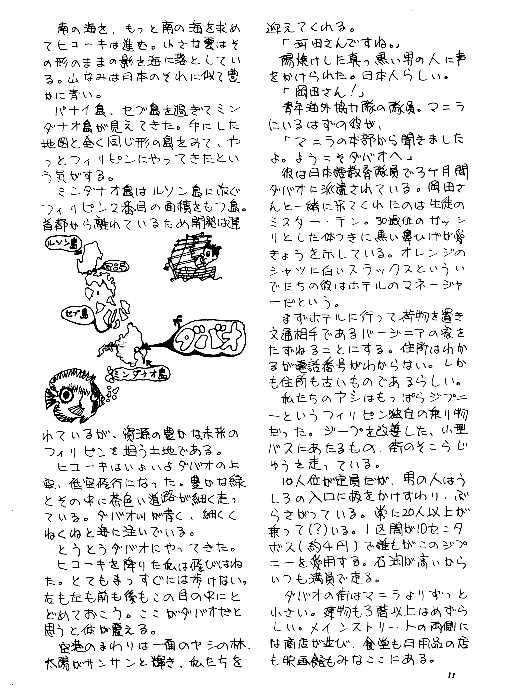 南の海を、もっと南の海を求め
てヒコーキは進む。小さな雲はそ
の形のままの影を海に落としてい
る。山なみは日本のそれに似て豊
かに青い。
パナイ島、セブ島を過ぎてミン
ダナオ島が見えてきた。手にした
地図と全く同じ形の島をみて、や
っとフィリピンにやってきたとい
う気がする。
ミンダナオ島はルソン島に次ぐ
フィリピン2番目の面積をもつ島。
首都から離れているため開発は遅
ルソン島
セブ島
ダバオ
ミンダナオ島
れているが、資源の豊かな未来の
フィリピンを担う土地である。
ヒコーキはいよいよダバオの上
空、低空飛行になった。豊かな緑
とその中に茶色い道路が細く走っ
ている。ダバオ川が青く、細くく
ねくねと海に注いでいる。
とうとうダバオにやってきた。
ヒコーキを降りた私は飛びはね
た。とてもまっすぐには歩けない。
左も右も前も後もこの目の中にと
どめておこう。ここがダバオだと
思うと体が震える。
空港のまわりは一面のヤシの林、
太陽がサンサンと輝き、私たちを
迎えてくれる。
「河田さんですね。」
陽焼けした真っ黒い男の人に声
をかけられた。日本人らしい。
「岡田さん!」
青年海外協力隊の隊員。マニラ
にいるはずの彼が、
「マニラの本部から聞きました
よ。ようこそダバオへ」
彼は日本語教育隊員で3ヶ月間
ダバオに派遣されている。岡田さ
んと一緒に来てくれたのは生徒の
ミスター・テン。30歳位のガッシ
リとした体つきに黒い鼻ひげが愛
きょうを示している。オレンジの
シャツに白いスラックスといういう
でたちの彼はホテルのマネージャ
ーだという。
まずホテルに行って荷物を置き
文通相手であるバージニアの家を
たずねることにする。住所はわか
るが電話番号がわからない。しか
も住所も古いものであるらしい。
私たちのアシはもっぱらジプニ
ーというフィリピン独在の乗り物
だった。ジープを改善した、小型
バスにあたるもの、街のそこらじ
ゅうを走っている。
10人位が定員だが、男の人はう
しろの入口に腰をかけすわり、ぶ
らさがっている。常に20人以上が
乗って(?)いる。1区間が10センタ
ボス(約4円)で誰もがこのジプ
ニーを愛用する。石油が高いから
いつも満員で走る。
ダバオの街はマニラよりずっと
小さい。建物も3階以上はめずら
しい。メインストリートの両側に
は商店が並び、食堂も日用品の店
も映画館もみなここにある。
11